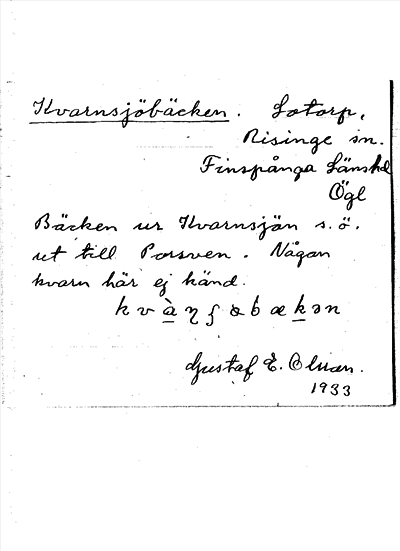 Kvarnsjöbäcken. Lotorp,
Risinge sn.
Finspånga Länshd
Ögl
Bäcken ur Kvarnsjön s.ö.
ut till Porsven. Någon
kvarn här ej känd.
Gustaf E. Olsson.
1933